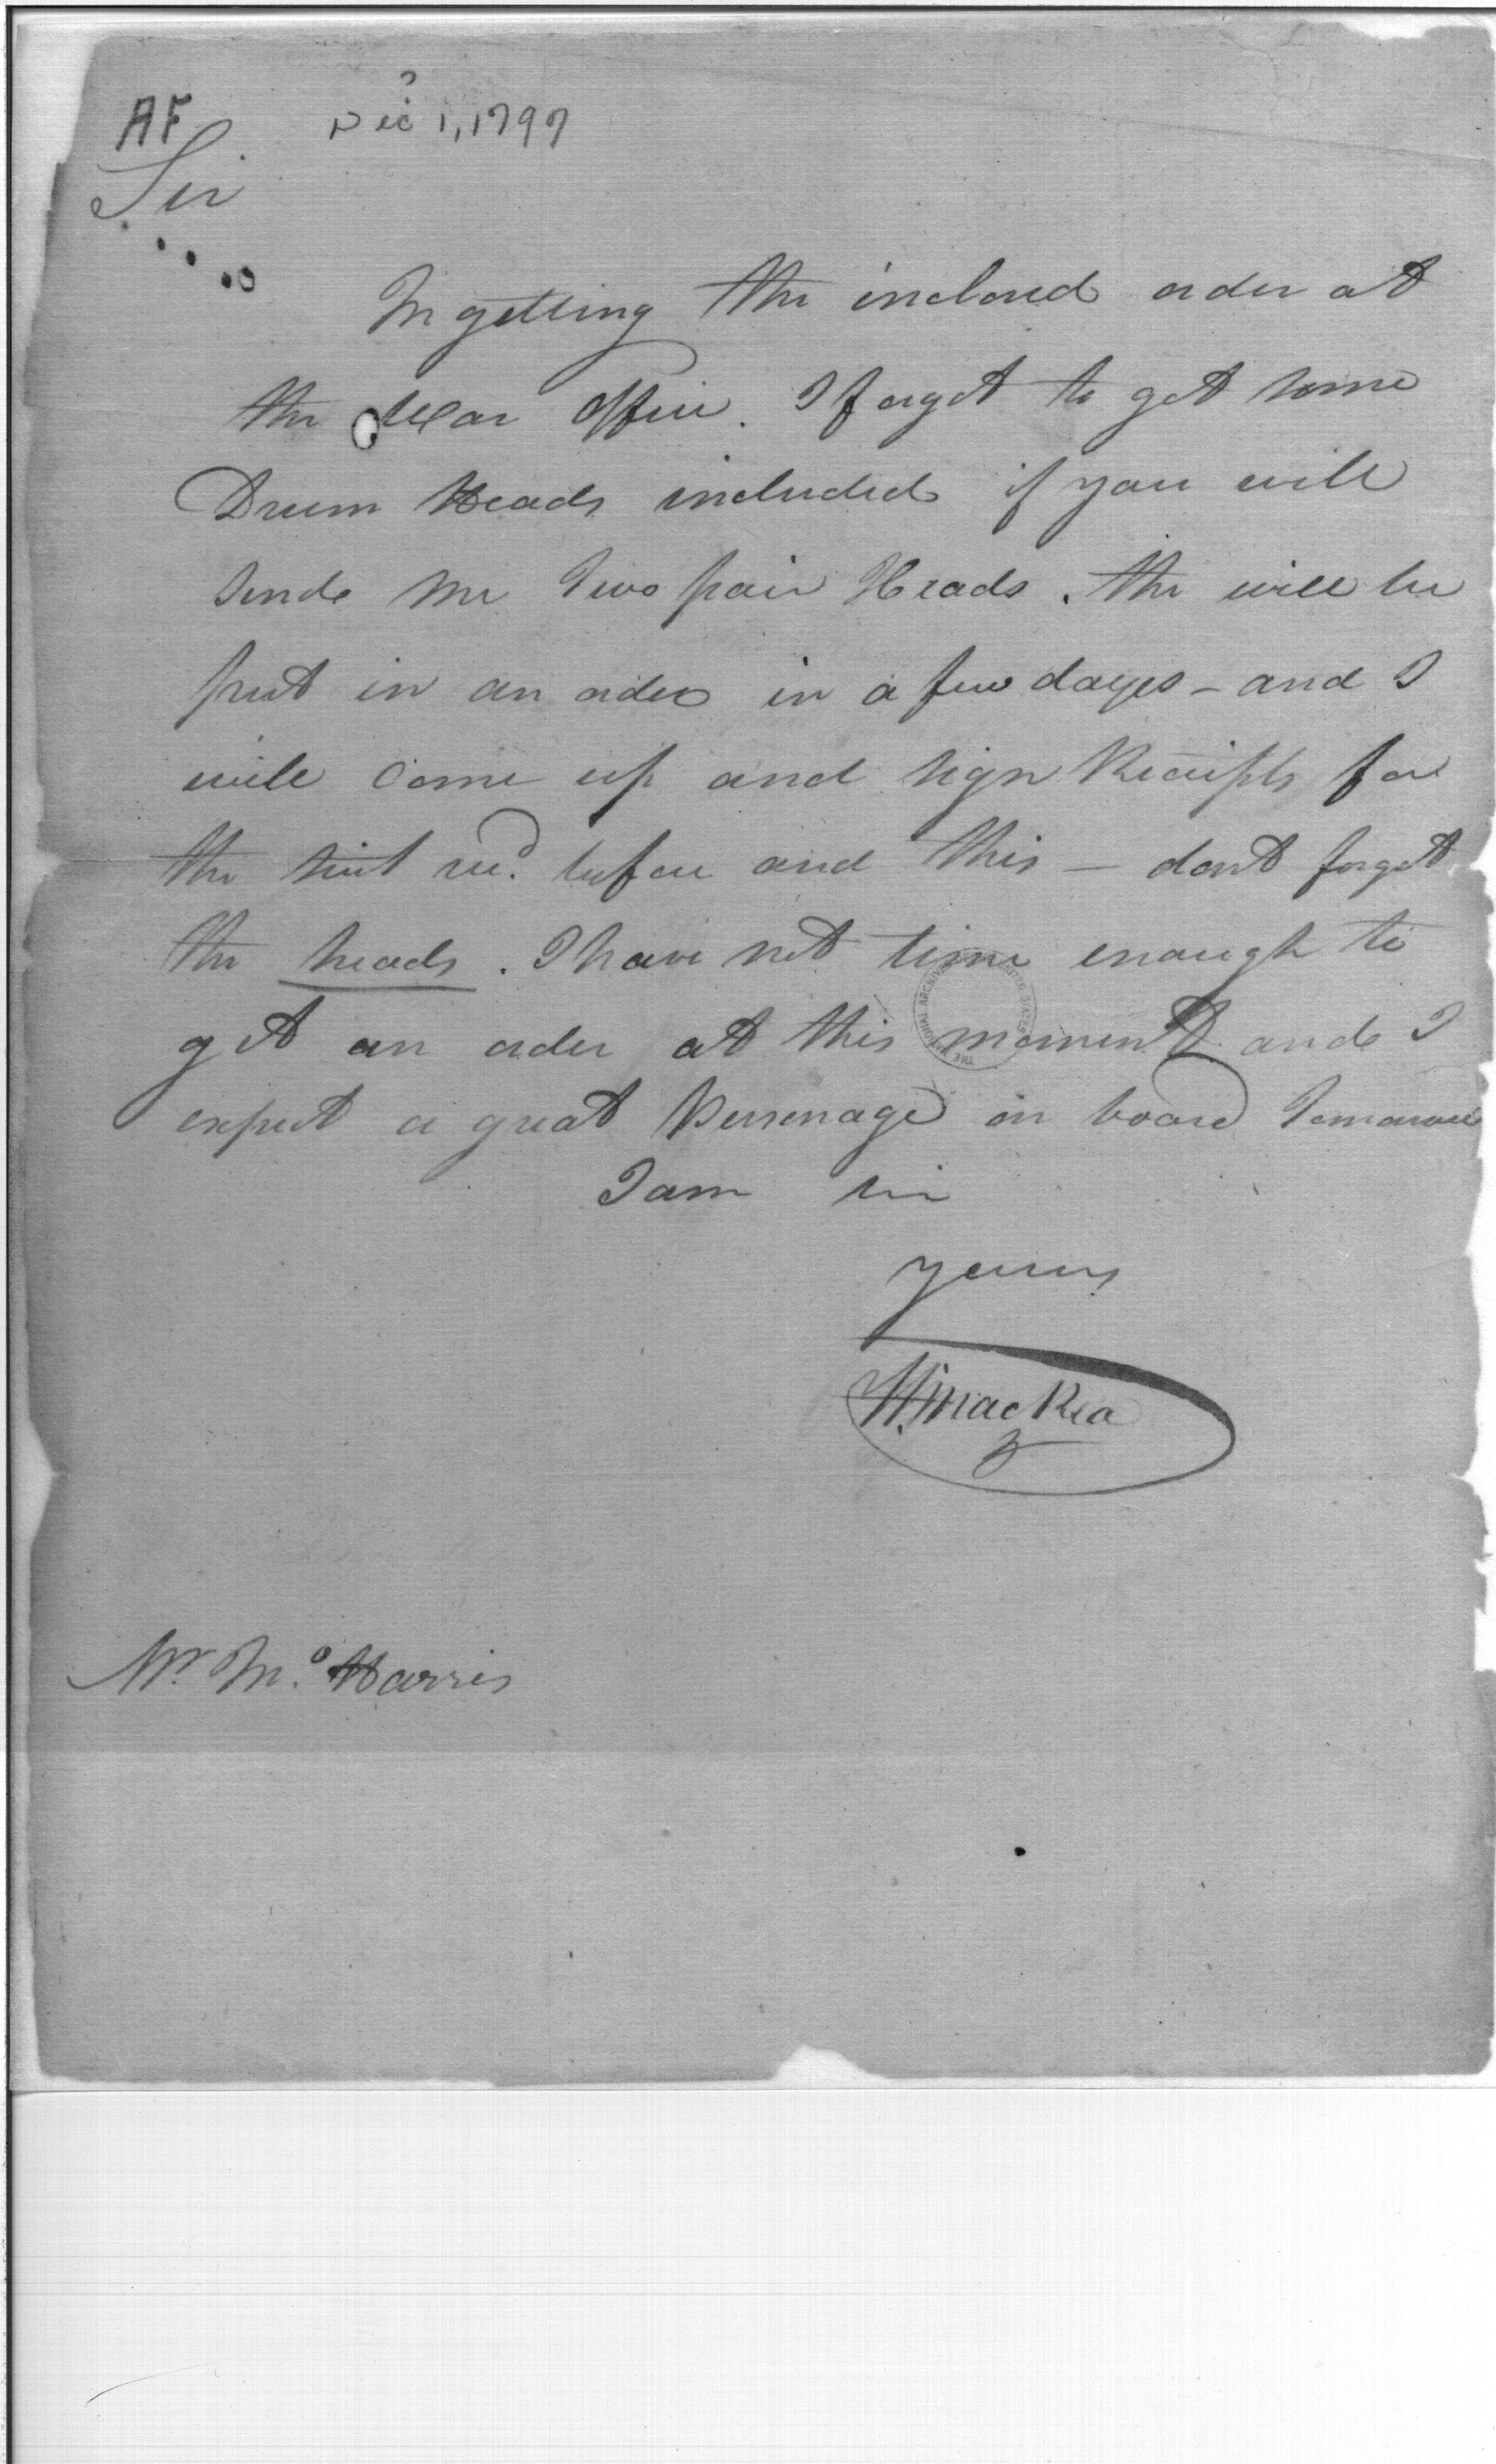 AF ? Dec 1, 1797
Sir
In getting the inclosed order at
the War Office. I forgot to get some
Drum Heads included if you will
send me Two pair Heads. the will be
put in an order in a few dayes - and I
will come up and sign Receipts for
the recd. before and this — dont forget
the heads. I have not time enough to
get an order at this moment and I
expect a great Personage on board Tomorrow
I am sir
yours
W. MacRea
Mr. Mo. Harris
THE NATIONAL ARCHIVES UNITED STATES